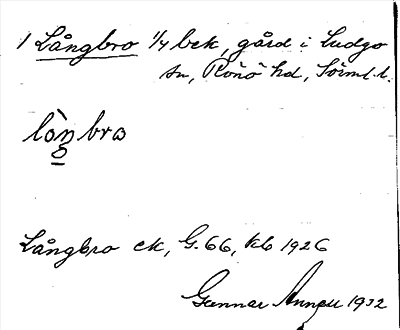 1 Långbro 1/4 bek, gård i Ludgo
sn, Rönö hd, Söiml.l.
lo᷇n bro
o
Långbro ek, G. 66, kb 1926
Gunnar 1932